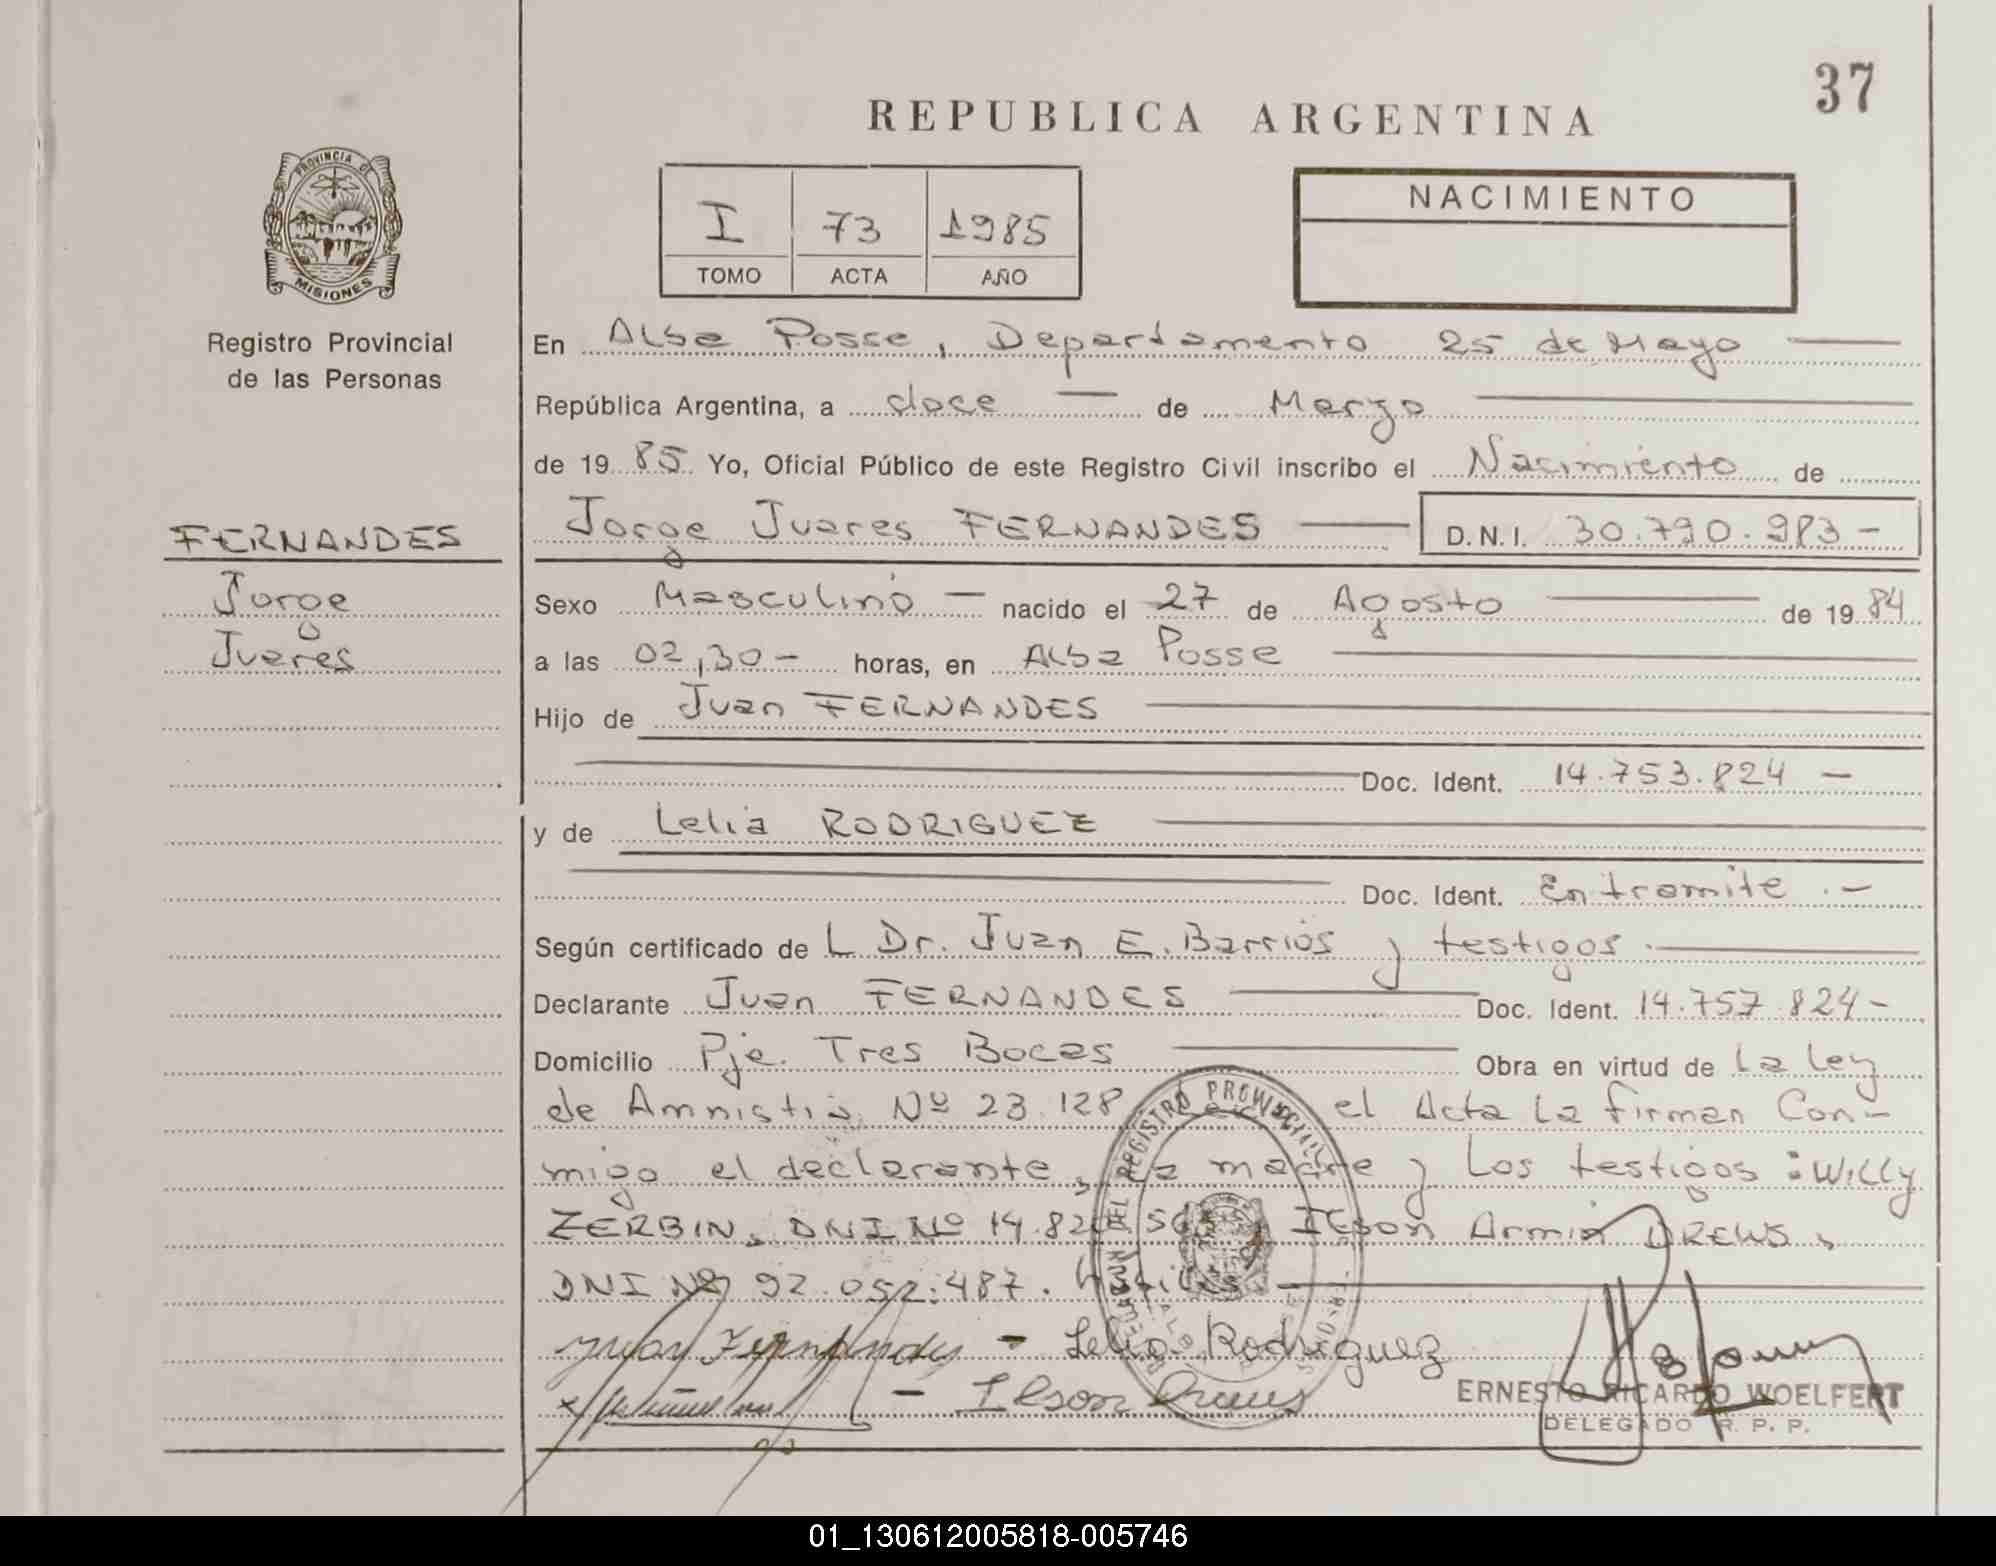 37
REPUBLICA ARGENTINA
PROVINCIA DE
MISIONES
Registro Provincial
de las Personas
I 73 1985
TOMO ACTA AÑO
NACIMIENTO
En Alba Posse, Departamento 25 de Mayo
República Argentina, a doce de Marzo
de 19 85 Yo, Oficial Público de este Registro Civil inscribo el Nacimiento de
FERNANDES
Jorge
Juares
Jorge Juares FERNANDES D.N.I. 30.790.983-
Sexo Masculino nacido el 27 de Agosto de 19 84
a las 02,30- horas, en Alba Posse
Hijo de Juan FERNANDES
Doc. Ident. 14.753.824 -
y de Lelia RODRIGUEZ
Doc. Ident. En tramite.-
Según certificado de L Dr. Juan E. Barrios y testigos.
Declarante Juan FERNANDES Doc. Ident. 14.757.824-
Domicilio Pje. Tres Bocas Obra en virtud de La Ley
de Amnistia Nº 23.128 el Acta la firman Con-
migo el declarante, la madre y Los testigos: Willy
ZERBIN, DNI Nº 14.82 Ilson Armin DREWS,
DNI Nº 92.052.487.
Juan Fernandes - Lelia Rodriguez
- Ilson Drews
ERNESTO RICARDO WOELFERT
DELEGADO R. P. P.
REGISTRO PROVINCIAL
01_130612005818-005746